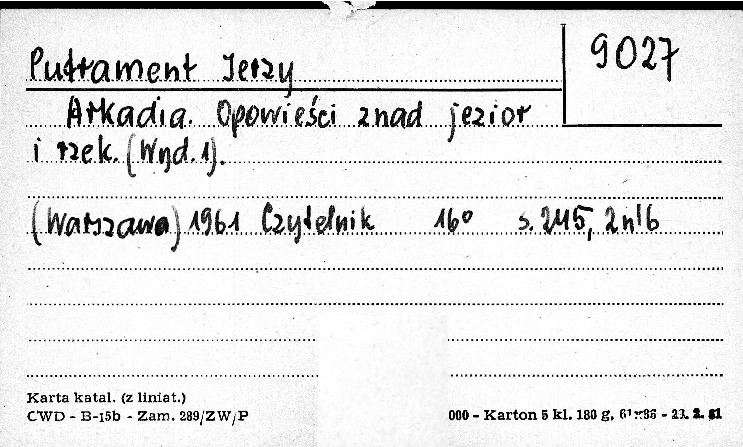 9027
Putrament Jerzy
Arkadia. Opowieści znad jezior
i rzek. (Wyd. 1).
(Warszawa) 1961 Czytelnik 16° s. 245, 2 nlb
Karta katal. (z liniat.)
CWD - B-15b - Zam. 289/ZW/P
000 - Karton 5 kl. 180 g, 61x86 - 23. 2. 81